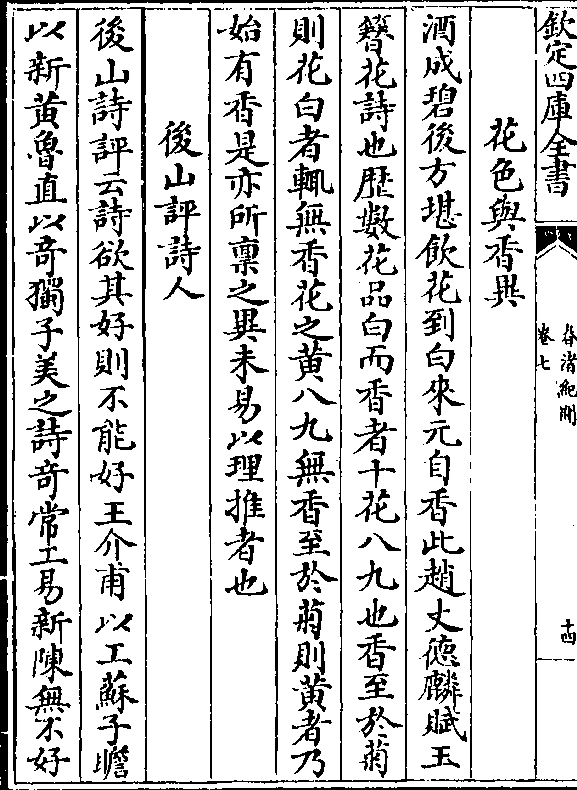 欽定四庫全書
春渚紀聞
卷七
十四
花色與香異
酒成碧後方堪飲花到白來元自香此趙丈德麟賦玉
簪花詩也歷數花品白而香者十花八九也香至於菊
則花白者輒無香花之黄八九無香至於菊則黄者乃
始有香是亦所禀之異未易以理推者也
後山評詩人
後山詩評云詩欲其好則不能好王介甫以工蘇子瞻
以新黄魯直以竒獨子美之詩竒常工易新陳無不好